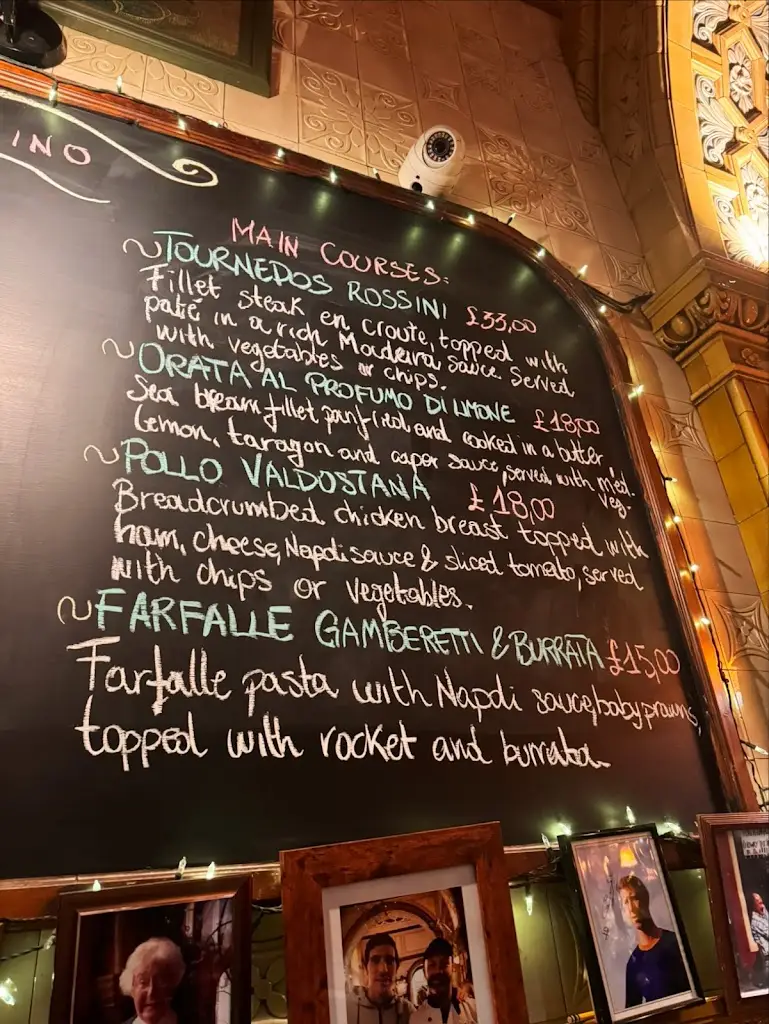 INO
MAIN COURSES:
~TOURNEDOS ROSSINI £33,00
Fillet steak en croute, topped with
paté in a rich Madeira sauce. Served
with vegetables or chips.
~ORATA AL PROFUMO DI LIMONE £18,00
Sea bream fillet panfried and cooked in a butter,
lemon, taragon and caper sauce, served with med.
veg.
~POLLO VALDOSTANA £18,00
Breadcrumbed chicken breast topped with
ham, cheese, Napoli sauce & sliced tomato, served
with chips or vegetables.
~FARFALLE GAMBERETTI & BURRATA £15,00
Farfalle pasta with Napoli sauce, baby prawns,
topped with rocket and burrata.